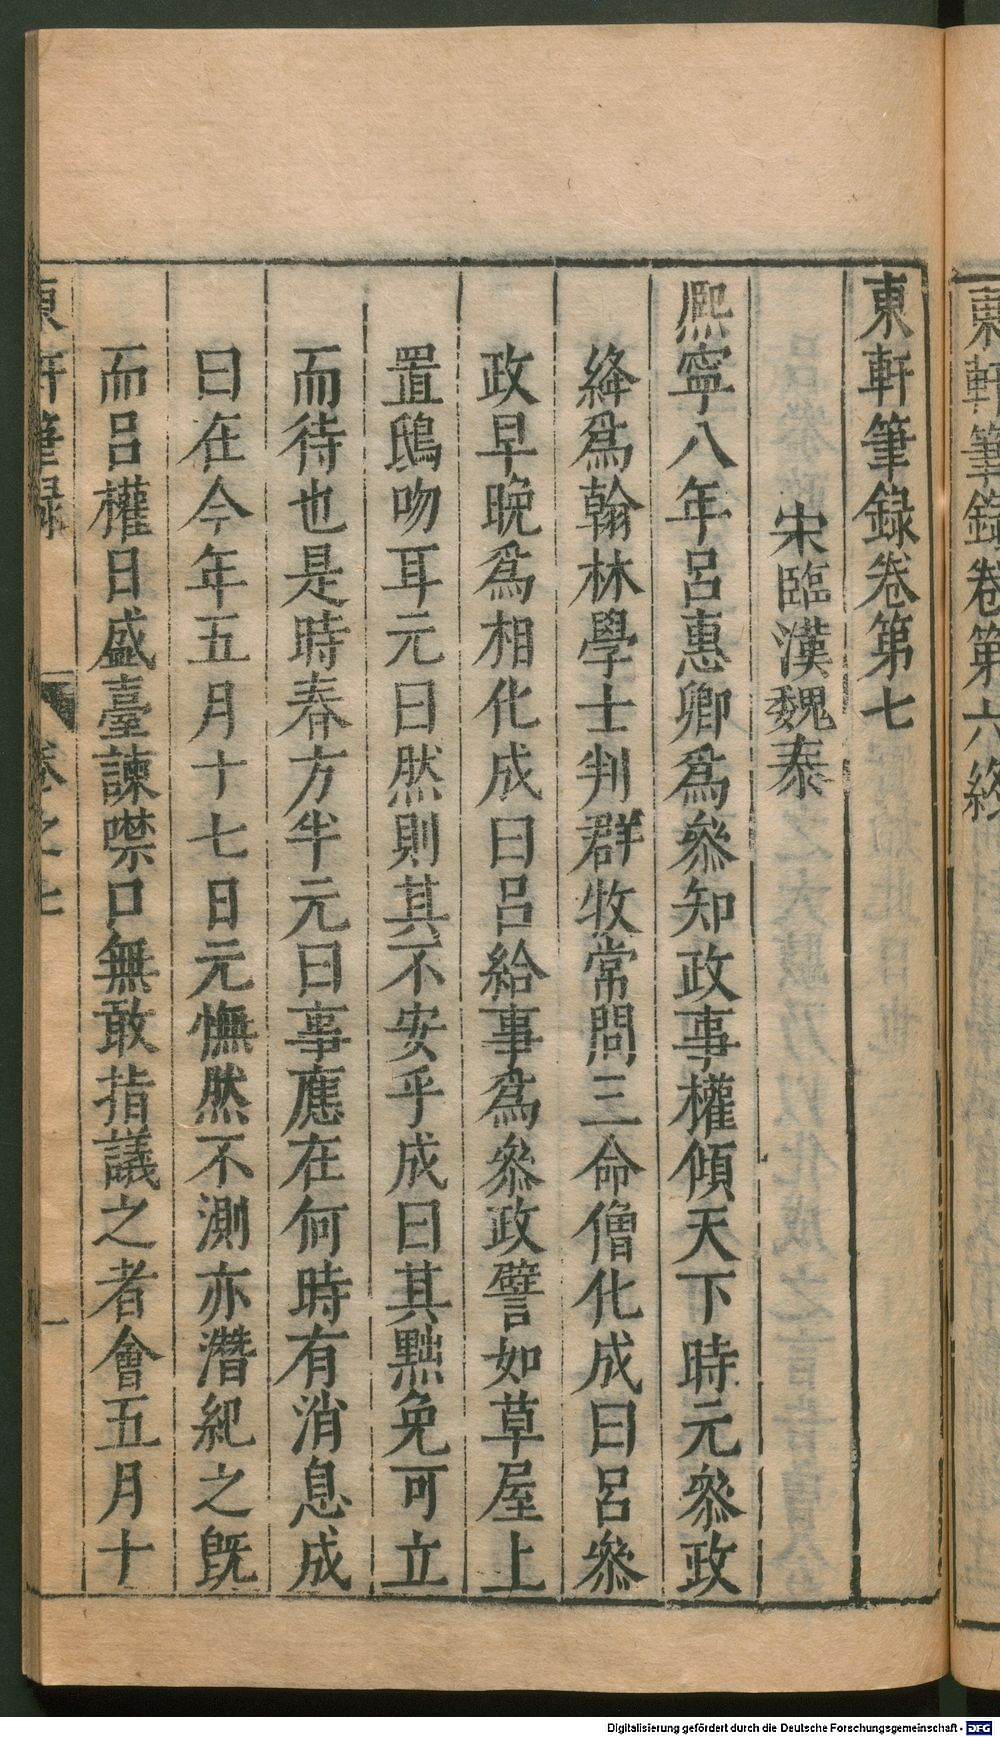 東軒筆錄卷第六終
東軒筆錄卷第七
宋臨漢魏泰
熙寧八年呂惠卿爲叅知政事權傾天下時元叅政
絳爲翰林學士判群牧常問三命僧化成曰呂叅
政早晚爲相化成曰呂給事爲叅政譬如草屋上
置鴟吻耳元曰然則其不安乎成曰其黜免可立
而待也是時春方半元曰事應在何時有消息成
曰在今年五月十七日元憮然不測亦潛紀之旣
而呂權日盛臺諫噤口無敢指議之者會五月十
東軒筆錄
卷之七
一
Digitalisierung gefördert durch die Deutsche Forschungsgemeinschaft - DFG